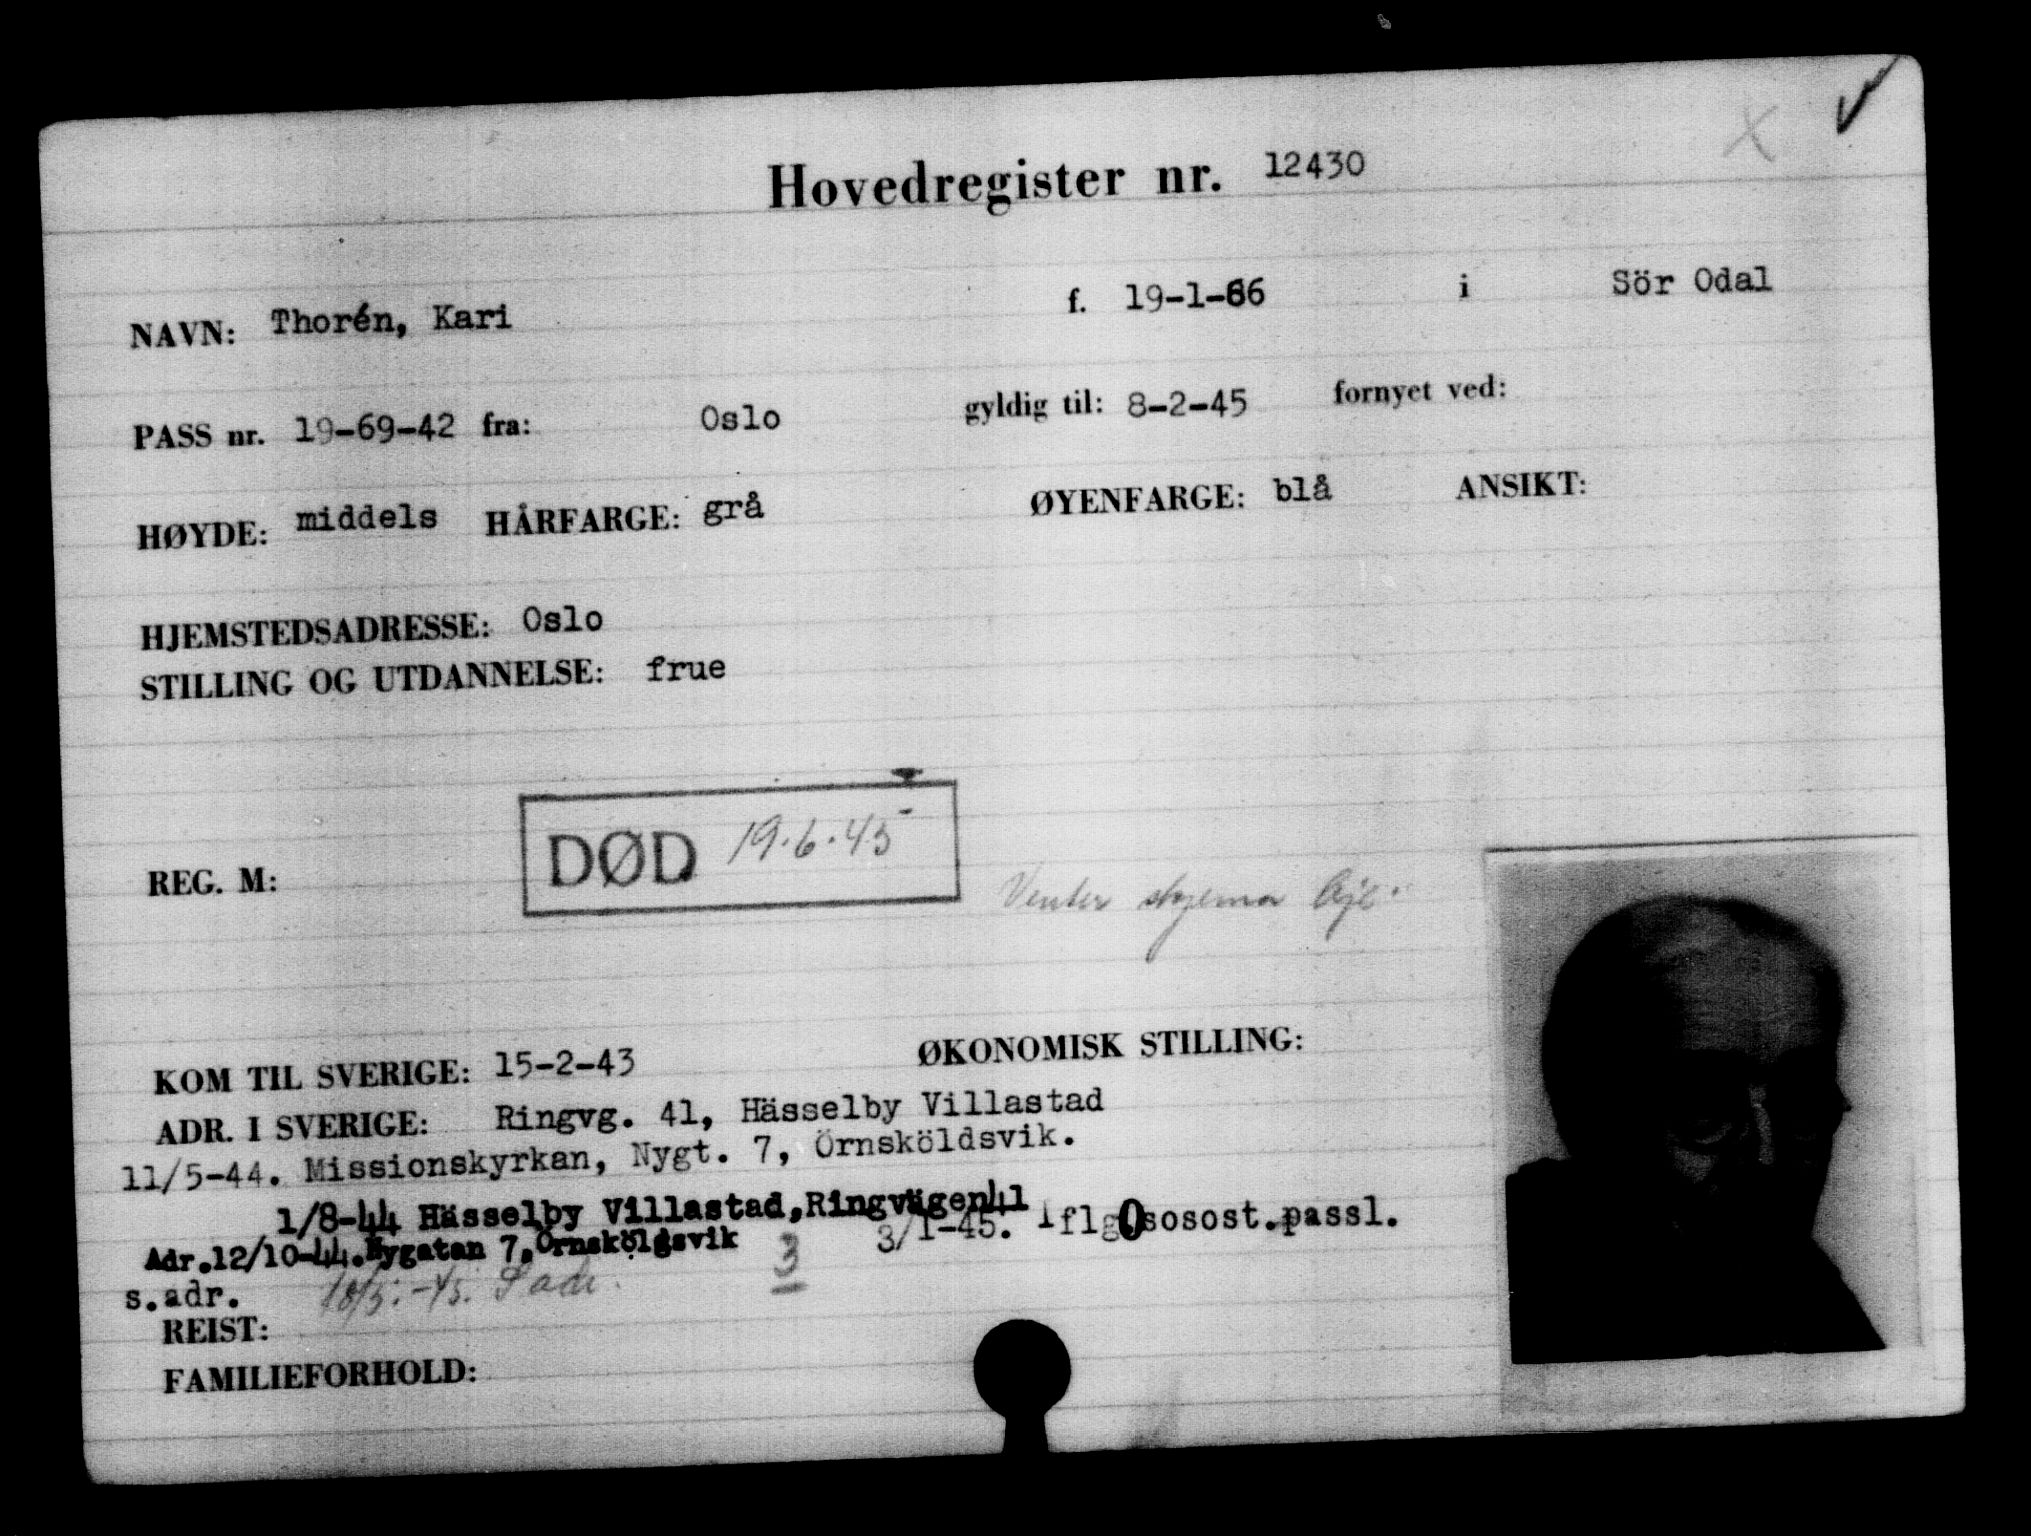 Hovedregister nr. 12430
NAVN: Thorén, Kari f. 19-1-66 i Sör Odal
PASS nr. 19-69-42 fra: Oslo gyldig til: 8-2-45 fornyet ved:
HØYDE: middels HÅRFARGE: grå ØYENFARGE: blå ANSIKT:
HJEMSTEDSADRESSE: Oslo
STILLING OG UTDANNELSE: frue
REG. M: DØD 19.6.45
Venter skjema
KOM TIL SVERIGE: 15-2-43 ØKONOMISK STILLING:
ADR. I SVERIGE: Ringvg. 41, Hässelby Villastad
11/5-44. Missionskyrkan, Nygt. 7, Örnsköldsvik.
1/8-44 Hässelby Villastad, Ringvägen 41
3/1-45. iflg. sosost. passl.
Adr. 12/10-44. Nygatan 7, Örnsköldsvik
3
s. adr.
REIST:
FAMILIEFORHOLD: